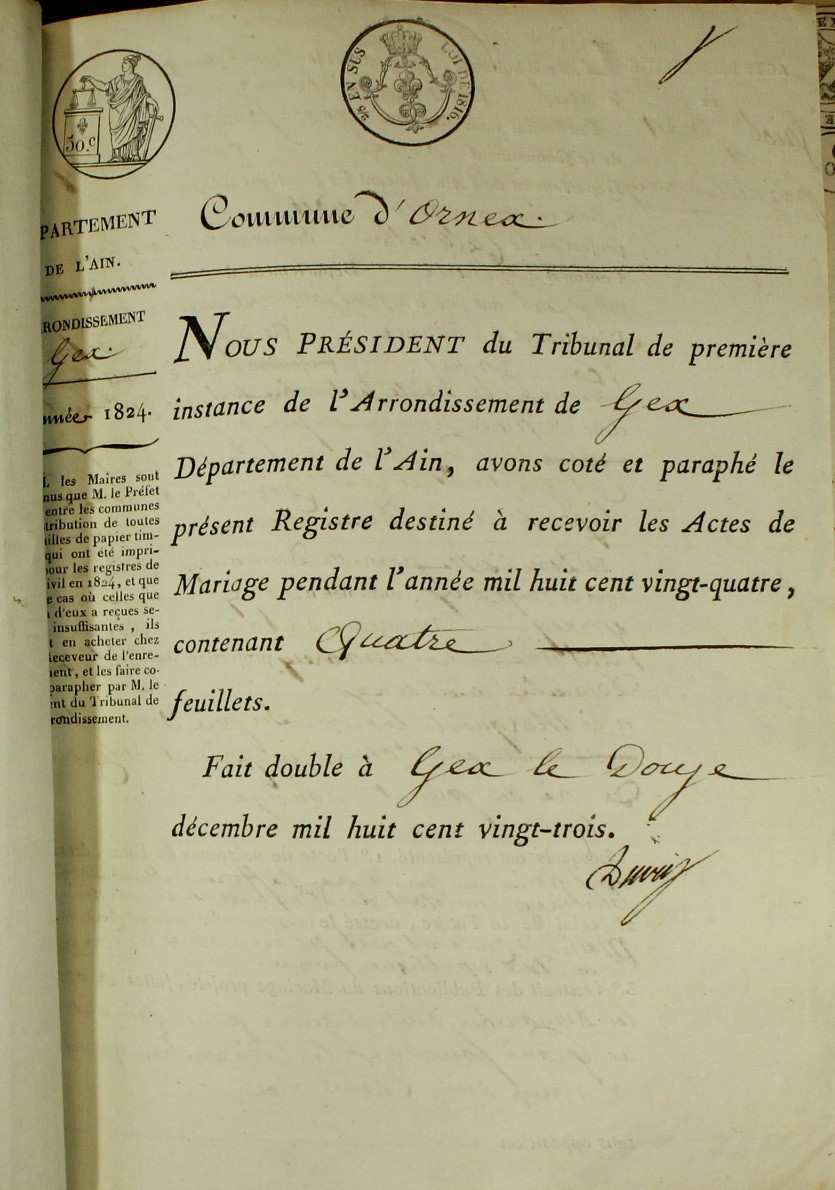 50.c
EN SUS
LOI DE 1816.
PARTEMENT
DE L'AIN.
RONDISSEMENT
Gex
nnée 1824.
les Maires sont
nus que M. le Préfet
entre les communes
tribution de toutes
illes de papier tim-
qui ont été impri-
our les registres de
ivil en 1824, et que
e cas où celles que
d'eux a reçues se-
insuffisantes, ils
t en acheter chez
eceveur de l'enre-
ent, et les faire co-
parapher par M. le
nt du Tribunal de
rondissement.
Commune d'Ornex.
NOUS PRÉSIDENT du Tribunal de première
instance de l'Arrondissement de Gex
Département de l'Ain, avons coté et paraphé le
présent Registre destiné à recevoir les Actes de
Mariage pendant l'année mil huit cent vingt-quatre,
contenant Quatre
feuillets.
Fait double à Gex le Douze
décembre mil huit cent vingt-trois.